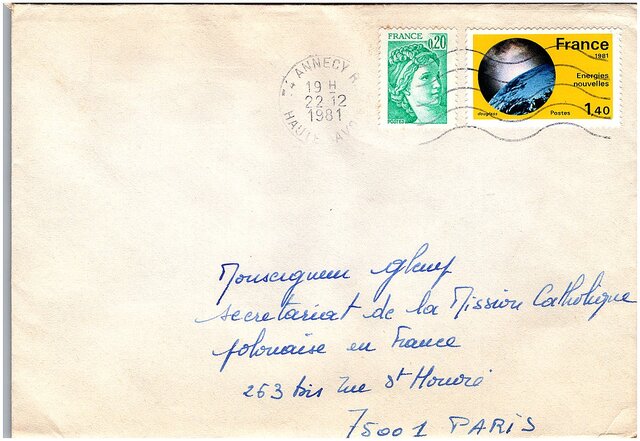 FRANCE
0,20
France
1981
Energies
nouvelles
1,40
Postes
74 ANNECY R.
19 H
22-12
1981
HAUTE
Monseigneur
secretariat de la Mission Catholique
polonaise en France
263 bis rue St Honoré
75001 PARIS